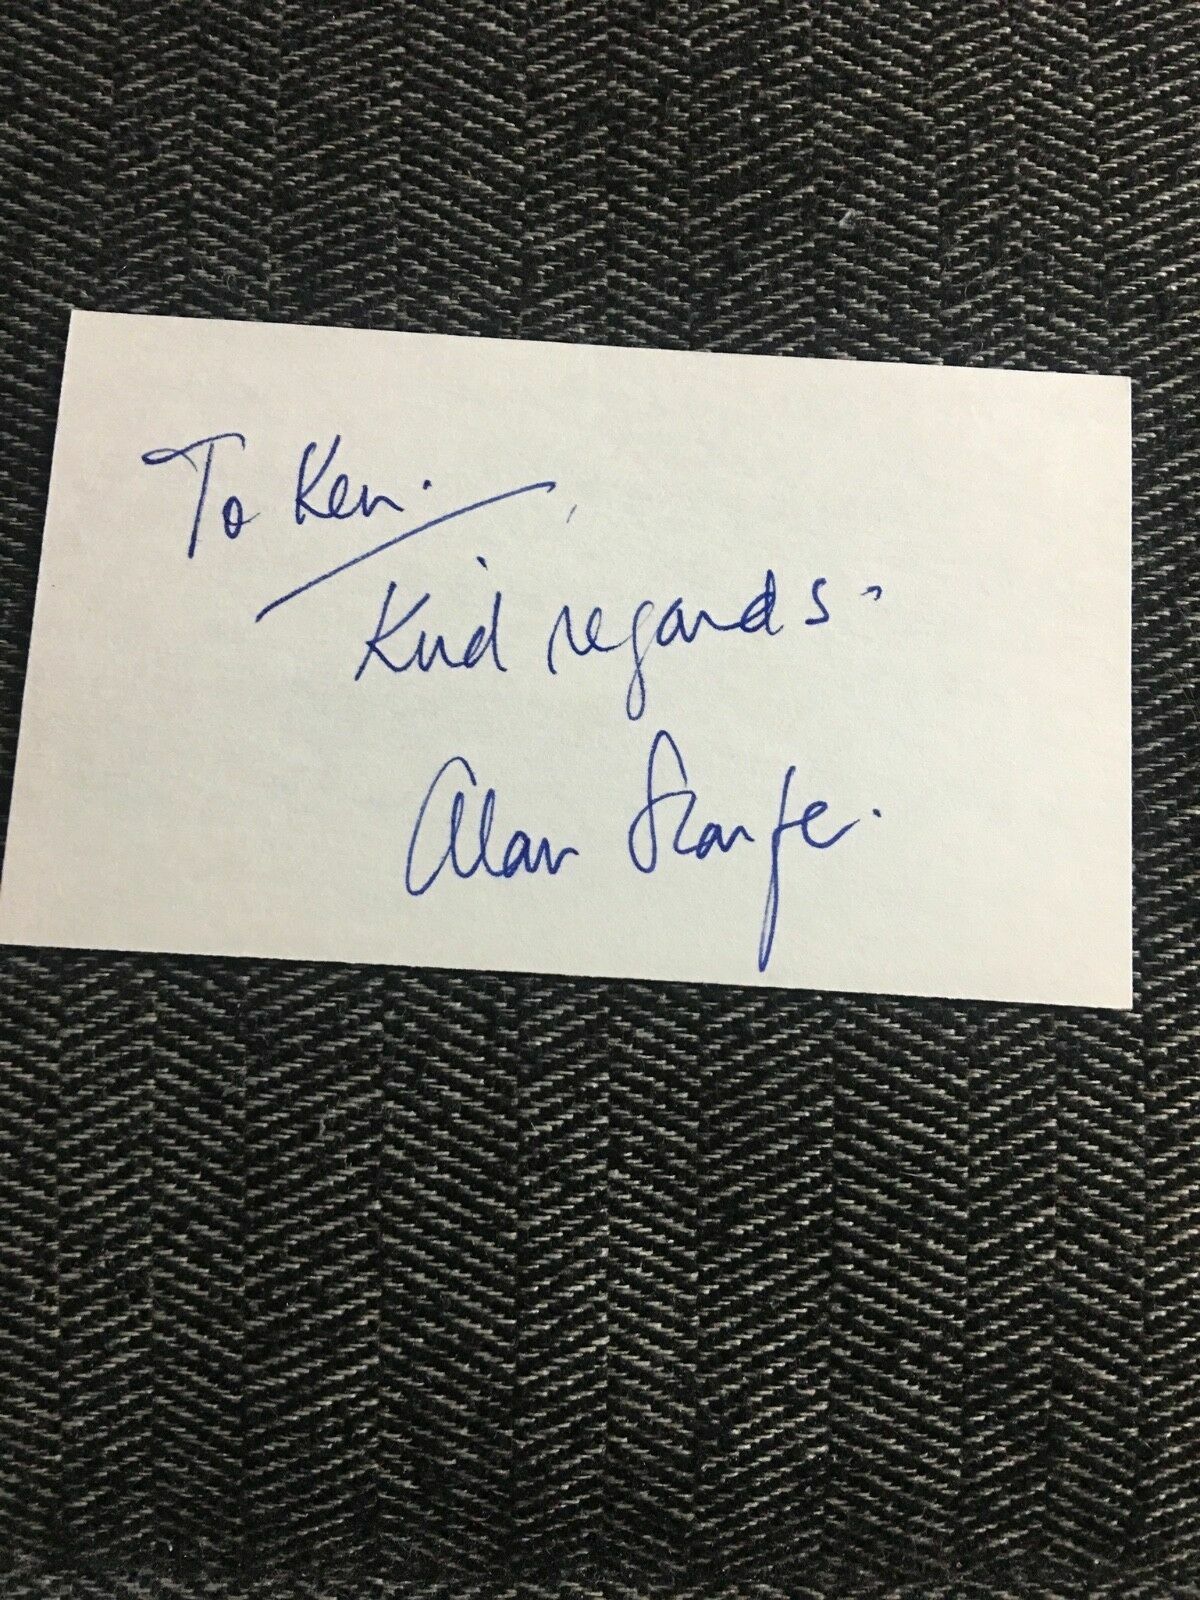 To Ken.
Kind regards -
Alan Scarfe.